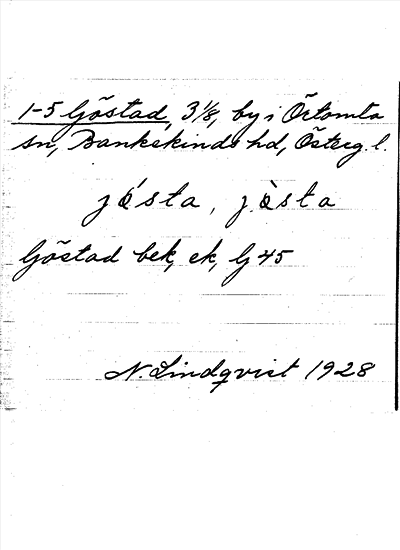 1-5 Göstad, 3 1/8, by i Örtomta
sn, Bankekinds hd, Österg. l.
jö́sta, jö̀sta
Göstad bek, ek, G 45
N. Lindqvist 1928